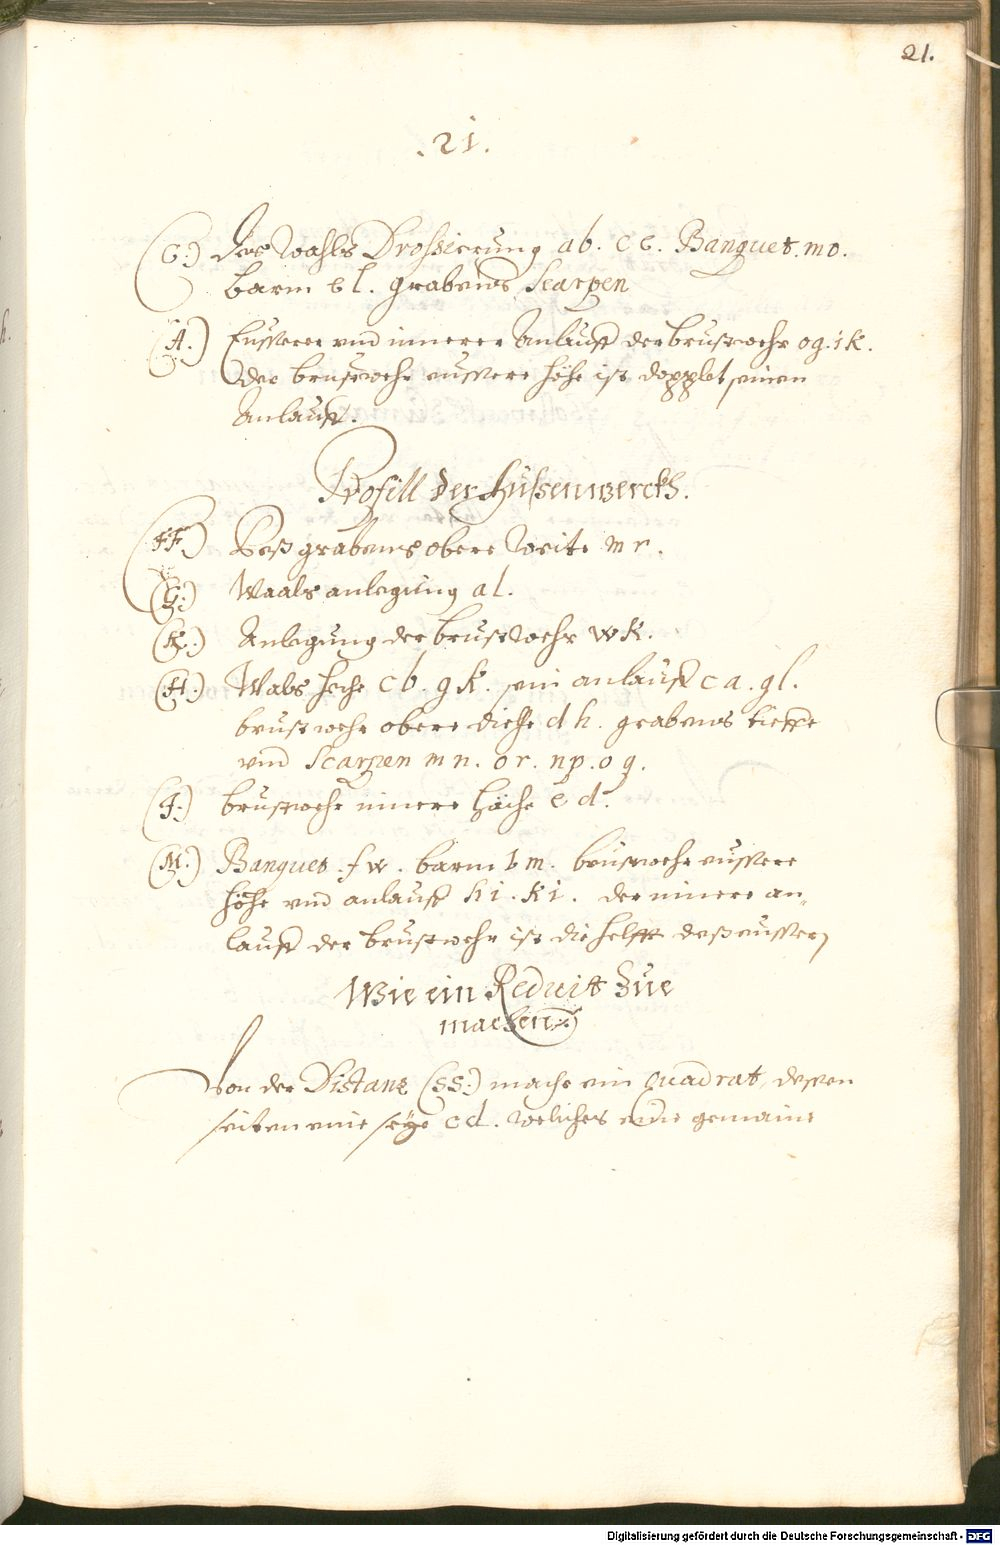 21.
.21.
(C.) Des Wahls Drossierung ab. ce. Banquet. mo.
barm el. grabens Scarpen
(A.) Eusserer vnd innerer Anlauff der brustwehr og. ik.
Der brustwehr eussere höhe ist dopplet seinen
Anlauff.
Profill der Aussenwercks.
(FF.) Deß grabens obere Weite mr.
(G.) Waals anlegung al.
(K.) Anlegung der brustwehr wk.
(H.) Wals heche cb. gk. sein anlauff ca. gl.
brustwehr obere dickhe dh. grabens tieffe
vnd Scarpen mn. or. np. oq.
(I.) brustwehr innere höche ed.
(M.) Banquet. fw. barm lm. brustwehr eussere
höhe vnd anlauff hi. ki. der innere an„
lauff der brustwehr ist die helfft deß eussern
Wie ein Reduit zue
machen.
Von der Distanz (SS.) mache ein quadrat, dessen
seiten eine seye cd. welches eine gemaine
Digitalisierung gefördert durch die Deutsche Forschungsgemeinschaft - DFG